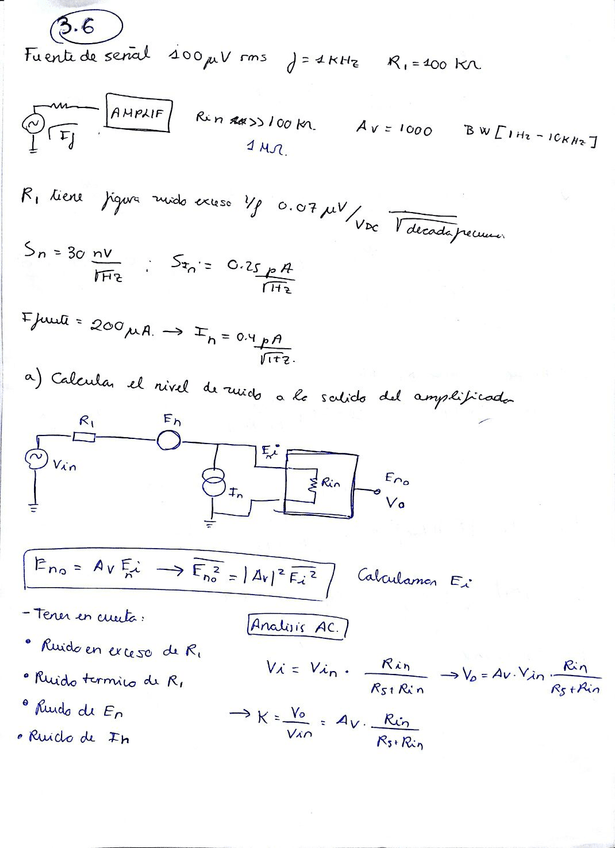 3.6
Fuente de señal 100 μV rms f = 1 KHz R₁ = 100 KΩ
AMPLIF Rin >> 100 KΩ. Av = 1000 BW [1Hz - 10KHz]
1 MΩ.
R₁ tiene figura ruido exceso 1/f 0.07 μV/VDC √decada
Sn = 30 nV/√Hz ; SIn = 0.25 pA/√Hz
I fuente = 200 μA. → In = 0.4 pA/√Hz.
a) Calcular el nivel de ruido a la salida del amplificador
R₁ En
Vin In Eni Rin Eno
Vo
Eno = Av Eni → Eno² = |Av|² Ei² Calculamos Ei
- Tener en cuenta: Analisis AC.
• Ruido en exceso de R₁
• Ruido termico de R₁
• Ruido de En
• Ruido de In
Vi = Vin · Rin/(Rs+Rin) → Vo = Av · Vin · Rin/(Rs+Rin)
→ K = Vo/Vin = Av · Rin/(Rs+Rin)